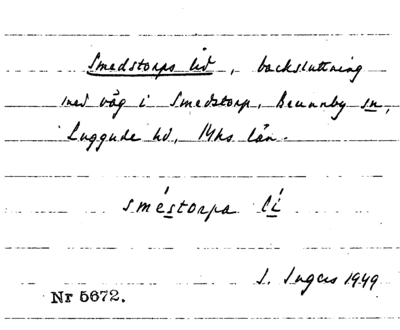 Smedstorps lid, backsluttning
med väg i Smedstorp, Brunnby sn,
Luggude hd, Mhs län.
sméstorpa lí
S. Ingers 1949
Nr 5672.